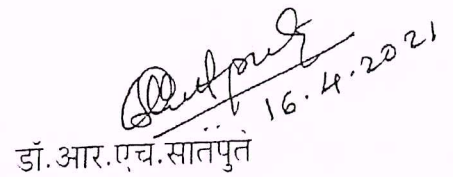 16.4.2021
डॉ.आर.एच.सातपुते